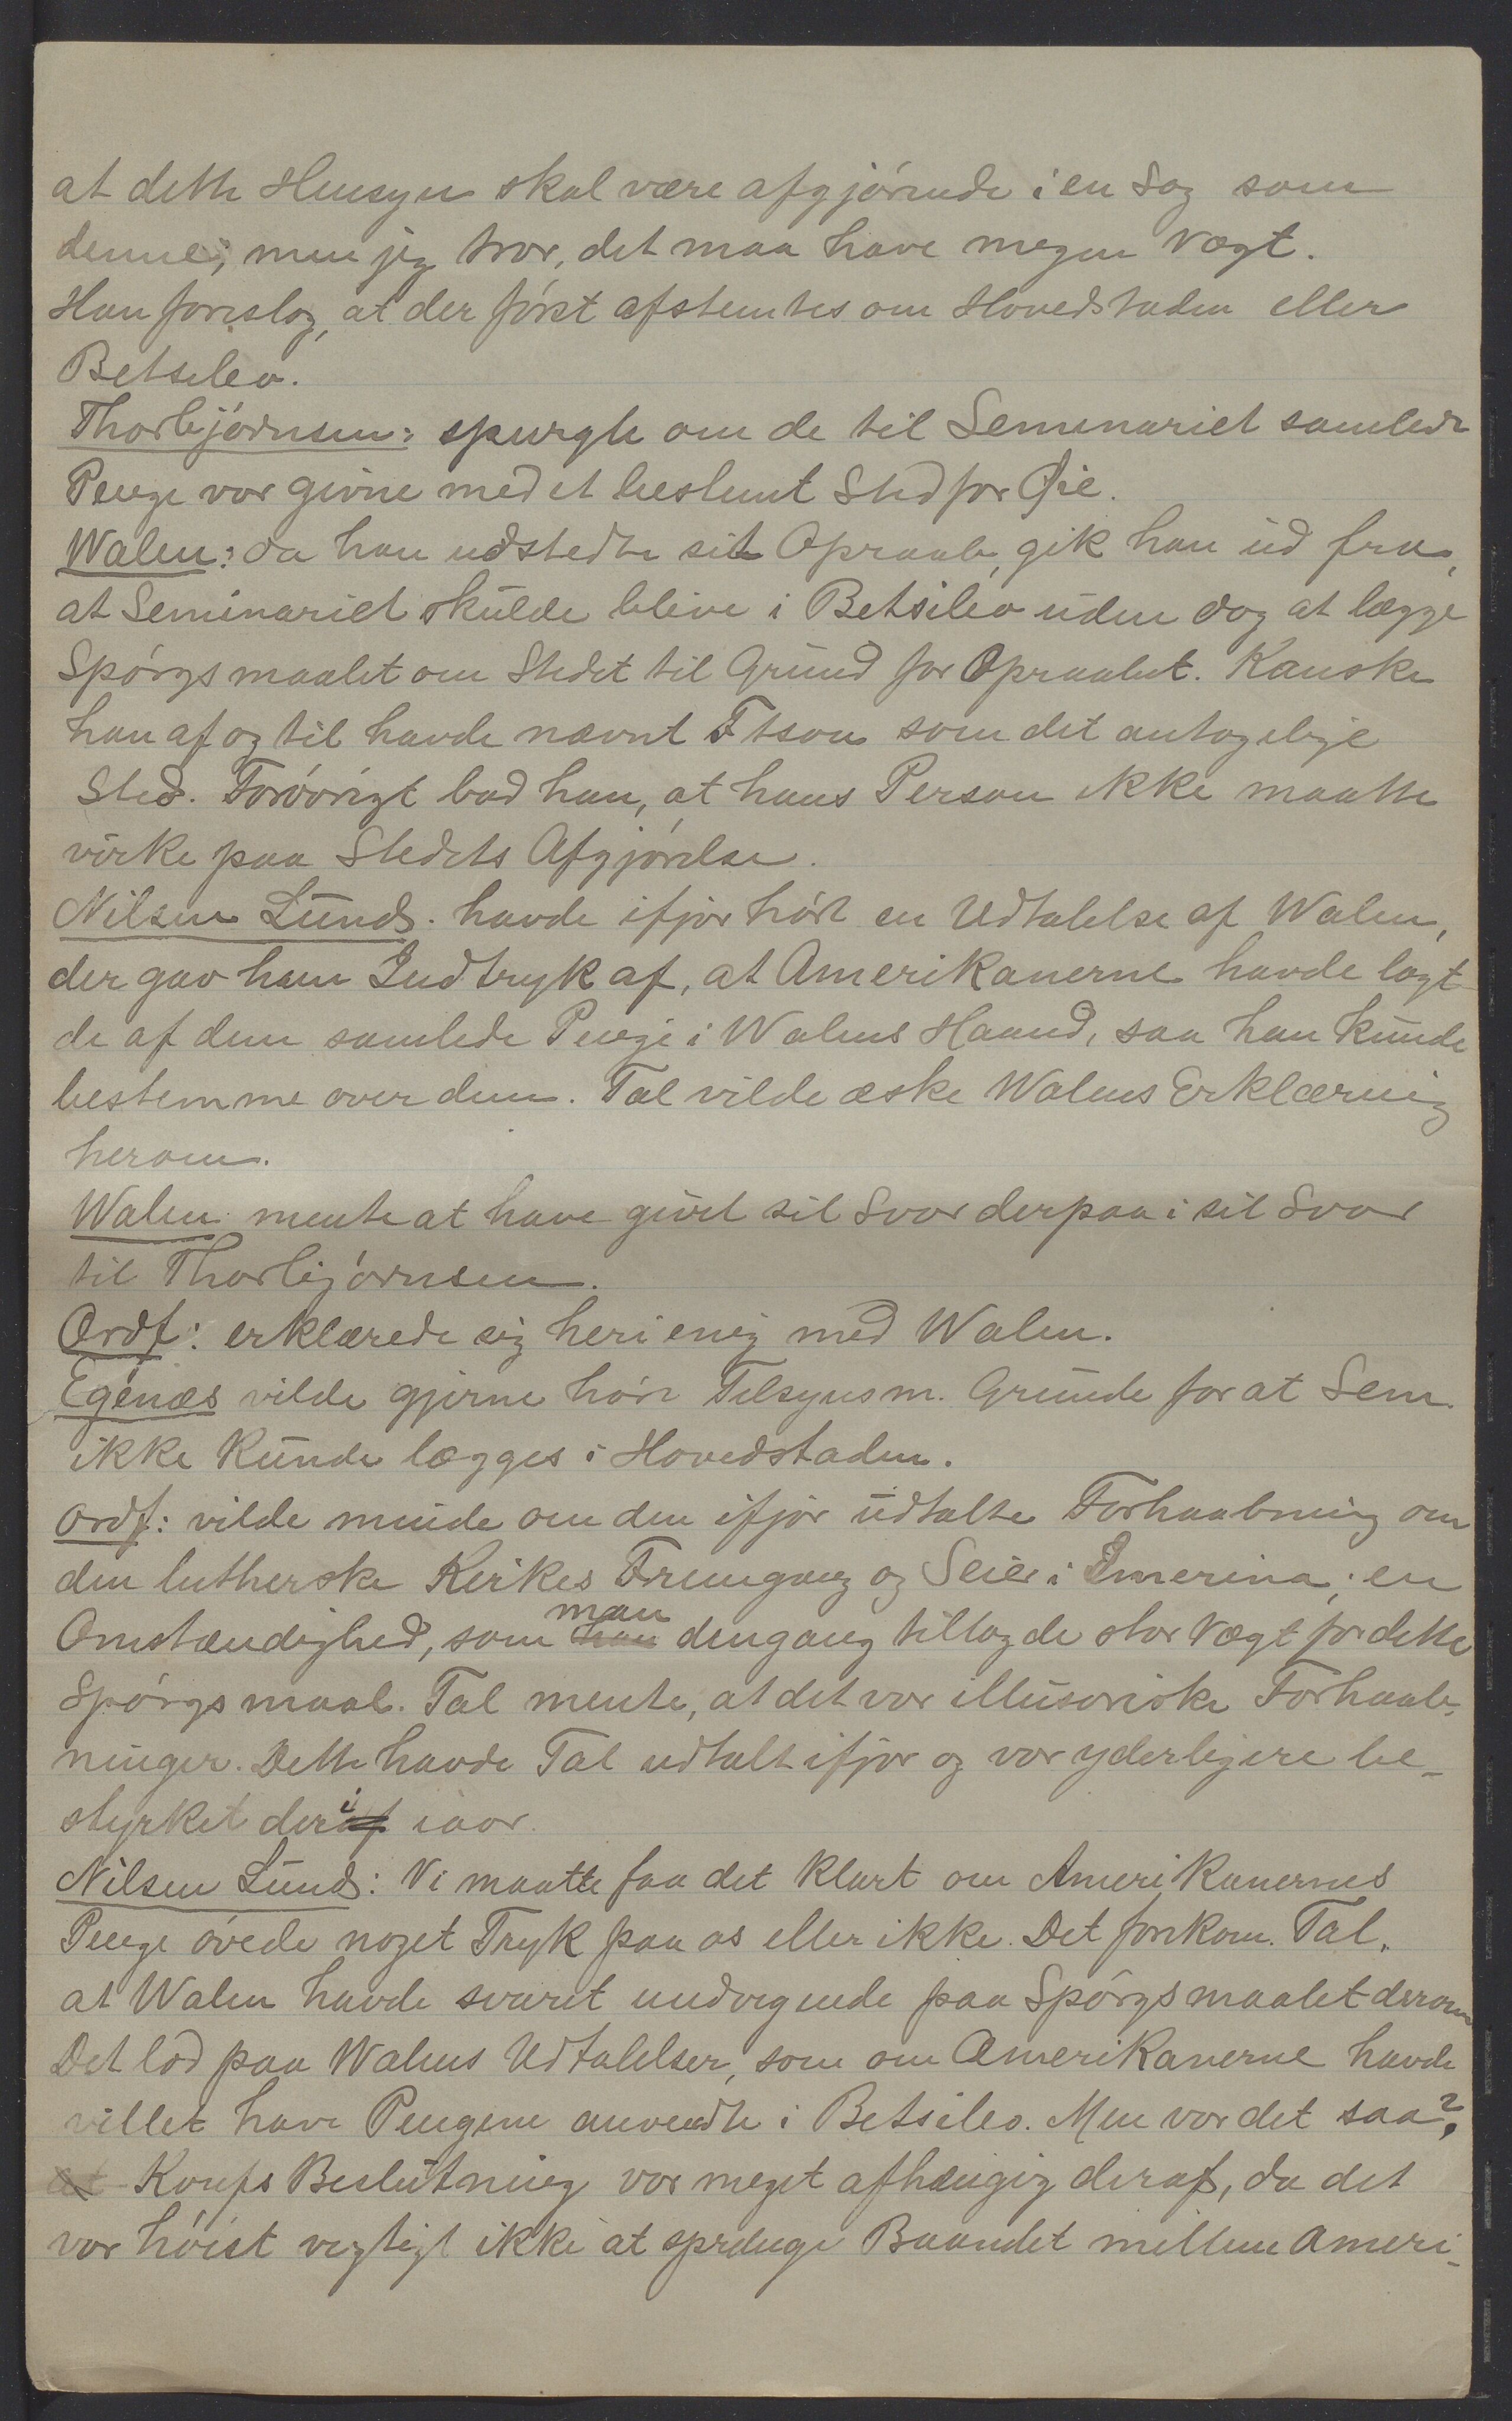 at dette Hensyn skal være afgjørende i en Sag som
denne; men jeg tror, det maa have megen Vægt.
Han foreslog, at der først afstemtes om Hovedstaden eller
Betsileo.
Thorbjørnsen: spurgte om de til Seminariet samlede
Penge var givne med et bestemt Sted for Øie.
Walen: da han udstedte sit Opraab, gik han ud fra,
at Seminariet skulde blive i Betsileo uden dog at lægge
Spørgsmaalet om Stedet til Grund for Opraabet. Kanske
han af og til havde nævnt Ftsoa som det antagelige
Sted. Forøvrigt bad han, at hans Person ikke maatte
virke paa Stedets Afgjørelse.
Nilsen Lund. havde ifjor hørt en Udtalelse af Walen,
der gav ham Indtryk af, at Amerikanerne havde lagt
de af dem samlede Penge i Walens Haand, saa han kunde
bestemme over dem. Tal vilde æske Walens Erklæring
herom.
Walen mente at have givet sit Svar derpaa i sit Svar
til Thorbjørnsen.
Ordf: erklærede sig heri enig med Walen.
Egenæs vilde gjerne høre Tilsynsm. Grunde for at Sem.
ikke kunde lægges i Hovedstaden.
Ordf: vilde minde om den ifjor udtalte Forhaabning om
den lutherske Kirkes Fremgang og Seier i Imerina; en
Omstændighed, som man dengang tillagde stor Vægt for dette
Spørgsmaal. Tal mente, at det var illusoriske Forhaab-
ninger. Dette havde Tal udtalt ifjor og var yderligere be-
styrket deri iaar.
Nilsen Lund: Vi maatte faa det klart om Amerikanernes
Penge øvede noget Tryk paa os eller ikke. Det forekom. Tal.
at Walen havde svaret undvigende paa Spørgsmaalet derom
Det lød paa Walens Udtalelser, som om Amerikanerne havde
villet have Pengene anvendte i Betsileo. Men var det saa?
at Konfs Beslutning var meget afhængig deraf, da det
var høist vigtigt ikke at sprenge Baandet mellem Ameri-